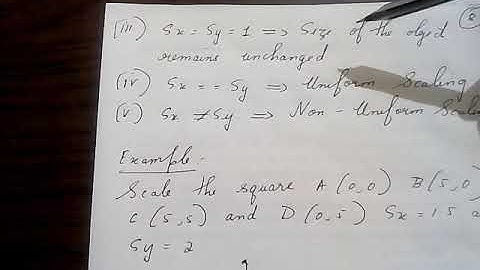 (iii) Sx = Sy = 1 => Size of the object
remains unchanged
(iv) Sx == Sy => Uniform Scaling
(v) Sx ≠ Sy => Non-Uniform Scali
Example:-
Scale the square A(0,0) B(5,0
C(5,5) and D(0,5) Sx = 1.5 a
Sy = 2